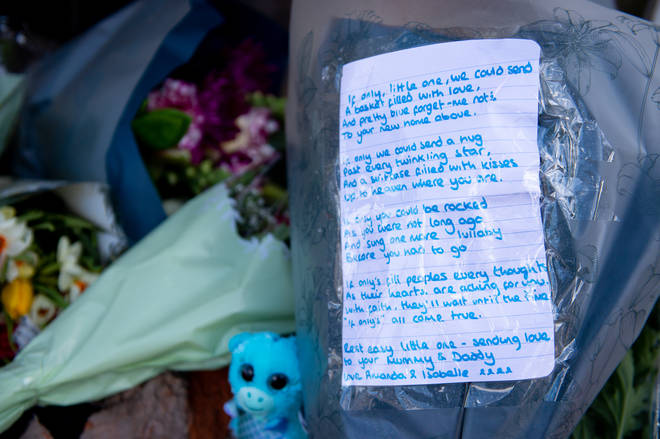 If only, little one, we could send
A basket filled with love,
And pretty blue forget-me nots
To your new home above.
If only we could send a hug
Past every twinkling star,
And a suitcase filled with kisses
Up to heaven where you are.
If only you could be rocked
As you were not long ago
And sung one more lullaby
Before you had to go
If only's fill peoples every thoughts
As their hearts are aching for you.
With faith, they'll wait until the time
"If only's" all come true.
Rest easy little one - sending love
to your Mummy & Daddy
Love Amanda & Isabelle xxxx